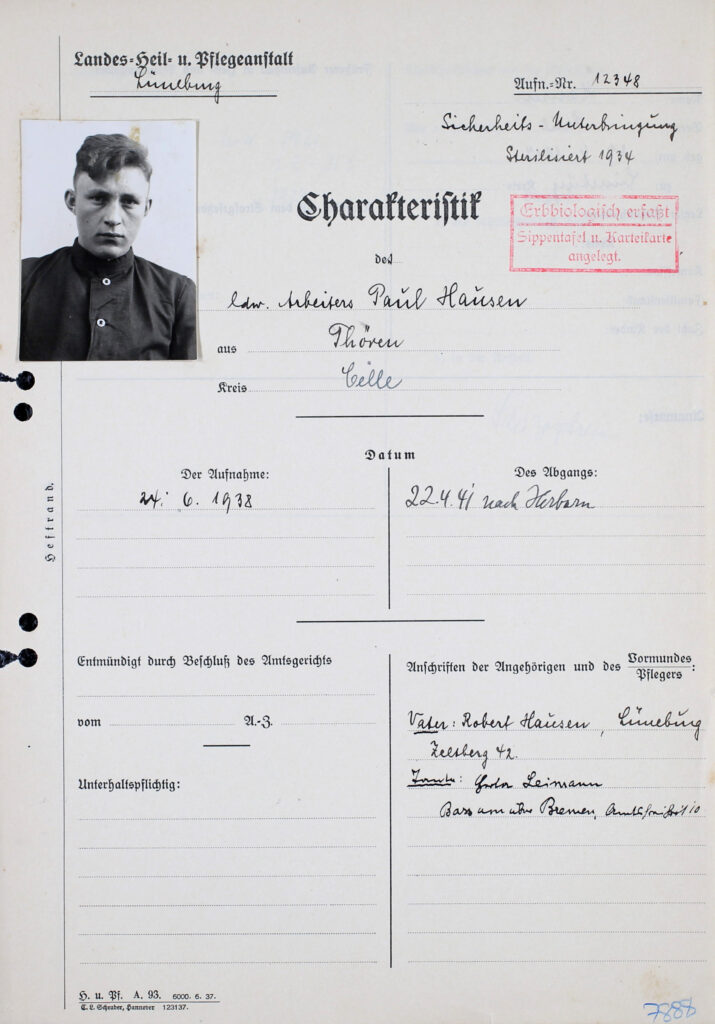 Landes-Heil- u. Pflegeanstalt
Lüneburg
Aufn.-Nr. 12348
Sicherheits-Unterbringung
Sterilisiert 1934
Charakteristik
Erbbiologisch erfaßt
Sippentafel u. Karteikarte
angelegt.
des
ldw. Arbeiters Paul Hausen
aus Thören
Kreis Celle
Datum
Der Aufnahme:
24. 6. 1938
Des Abgangs:
22.4.41 nach Herborn
Heftrand.
Entmündigt durch Beschluß des Amtsgerichts
vom A.-Z.
Unterhaltspflichtig:
Anschriften der Angehörigen und des Vormundes
Pflegers:
Vater: Robert Hausen, Lüneburg
Zeltberg 42.
Tante: Leimann
Bassum über Bremen, 10
H. u. Pf. A. 93. 6000. 6. 37.
C. L. Schrader, Hannover 123137.
7888